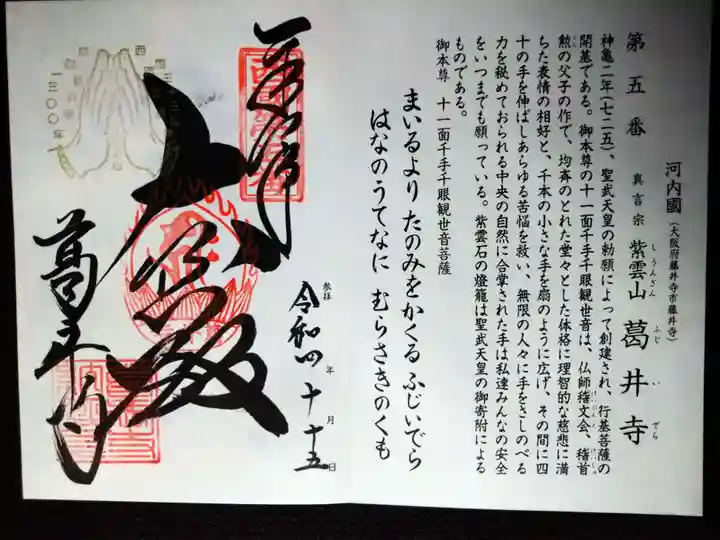 河内國(大阪府藤井寺市藤井寺)
第五番 真言宗 紫雲山 葛井寺
しうんざん ふじ い でら
神亀二年(七二五)、聖武天皇の勅願によって創建され、行基菩薩の
開基である。御本尊の十一面千手千眼観世音は、仏師稽文会、稽首
勲の父子の作で、均斉のとれた堂々とした体格に理智的な慈悲に満
ちた表情の相好と、千本の小さな手を扇のように広げ、その間に四
十の手を伸ばしあらゆる苦悩を救い、無限の人々に手をさしのべる
力を秘めておられる中央の自然に合掌された手は私達みんなの安全
をいつまでも願っている。紫雲石の燈籠は聖武天皇の御寄附による
ものである。
御本尊 十一面千手千眼観世音菩薩
まいるより たのみをかくる ふじいでら
はなのうてなに むらさきのくも
参拝 令和四年十月十五日
葛井寺
一三〇〇年